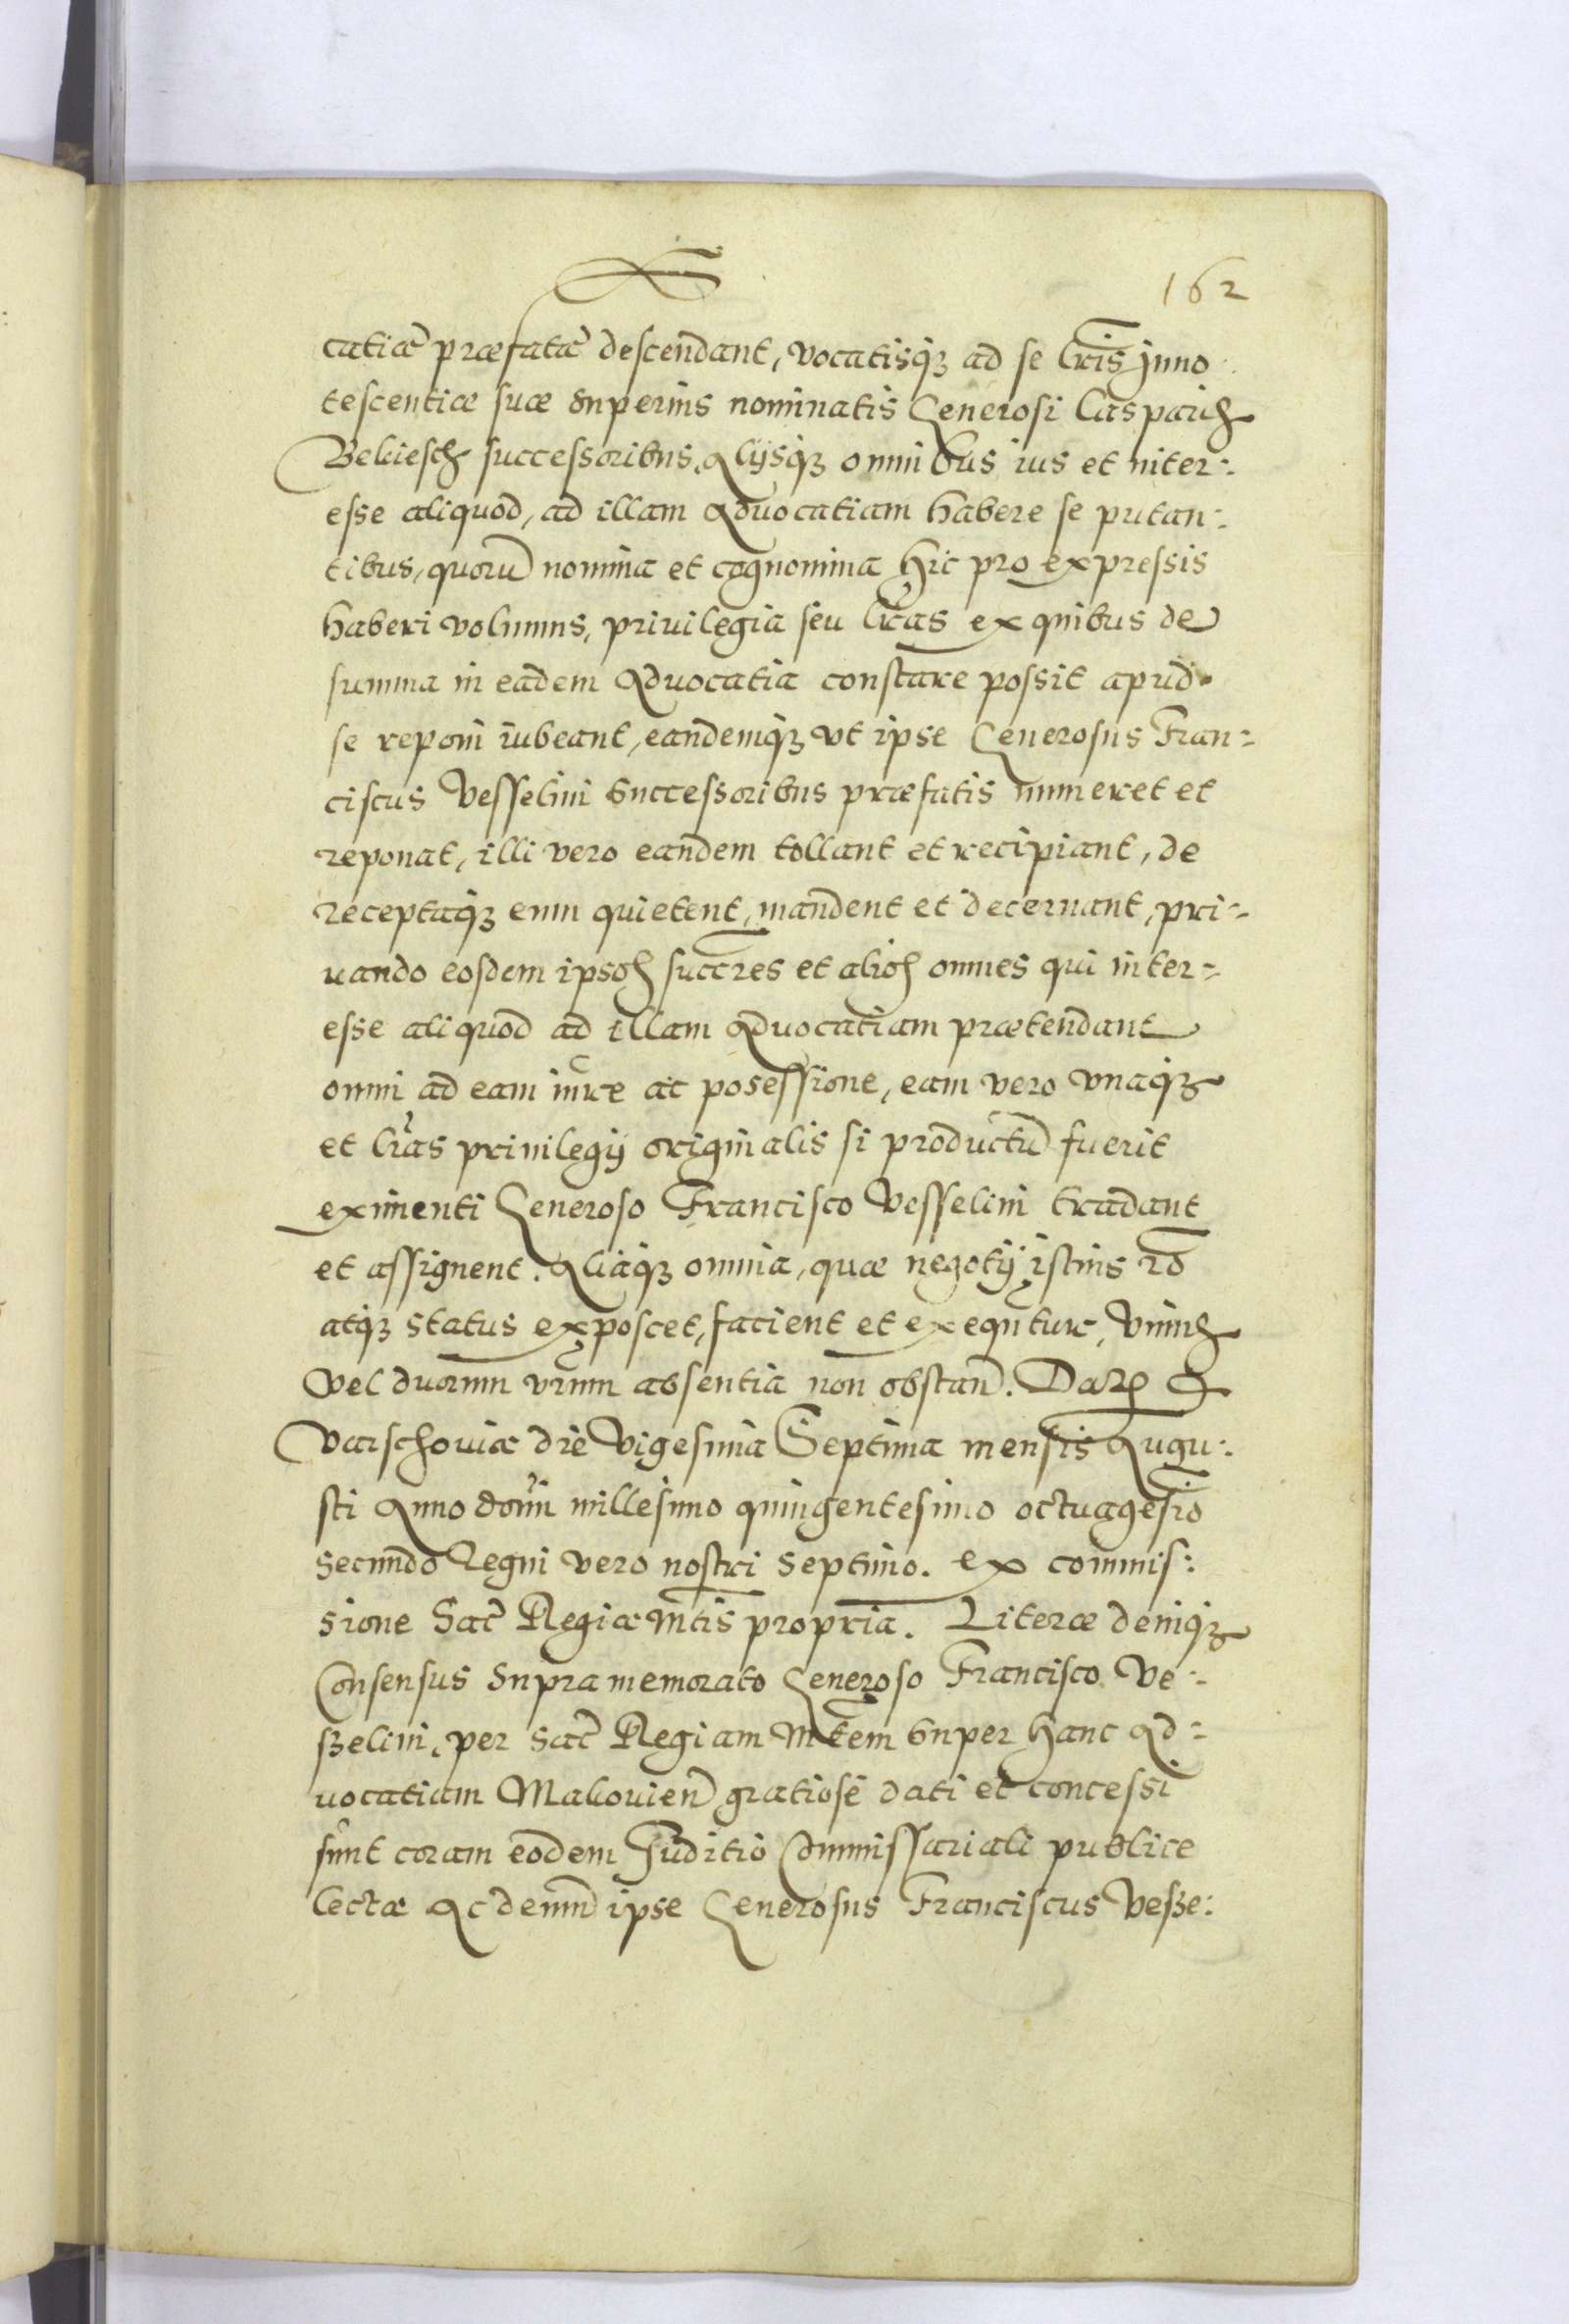 162
catiæ præfatæ descendant, vocatisq3 ad se lr̃is ynno
tescentiæ suæ superius nominatis Generosi Casparis
Bekiesch successoribus, Alijsq3 omnibus ius et inter:
esse aliquod, ad illam Advocatiam habere se putan:
tibus, quorũ nomina et cognomina hic pro expressis
haberi volumus, privilegia seu lr̃as ex quibus de
summa in eadem Advocatia constare possit apud
se reponi iubeant, eandemq3 vt ipse Generosus Fran:
ciscus Vesselini Successoribus præfatis numeret et
reponat, illi vero eandem tollant et recipiant, de
receptaq3 eum quietent, mandent et decernant, pri:
uando eosdem ipsos succr̃es et alios omnes qui inter:
esse aliquod ad illam Advocatiam prætendant
omni ad eam iure ac posessione, eam vero vnaq3
et lr̃as privilegij originalis si productũ fuerit
eximenti Generoso Francisco Vesselini tradant
et assignent. Aliaq3 omnia, quæ negotij istius rõ
atq3 status exposcet, facient et exequr̃tur, Vnius
vel duorum vr̃um absentia non obstañ.
Varschoviæ die Vigesima Septima mensis Augu:
sti Anno domĩ millesimo quingentesimo octuagesiõ
Secundo Regni vero nostri Septimo. ex commis:
sione Sac̃ Regiæ Mtis propria. Literæ deniq3
Consensus Supra memorato Generoso Francisco Ve:
szelini, per Sac̃ Regiam Mtem Super hanc Ad:
uocatiam Makovieñ gratiose dati et concessi
sunt coram eodem Juditio Commissariali publice
lectæ Ac demũ ipse Generosus Franciscus Vesze: